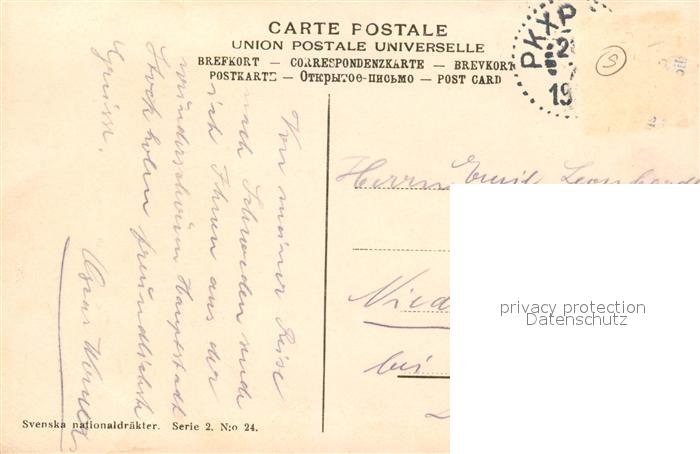 CARTE POSTALE
UNION POSTALE UNIVERSELLE
BREFKORT — CORRESPONDENZKARTE — BREVKORT
POSTKARTE — Открытое-письмо — POST CARD
PKXP
2
19
Von meiner Reise
nach Schweden sende
ich Ihnen aus der
wunderschönen Hauptstadt
Stockholm freundlichste
Grüsse.
Oscar
Herrn Emil Leonhardt
bei
privacy protection
Datenschutz
Svenska nationaldräkter. Serie 2. N:o 24.